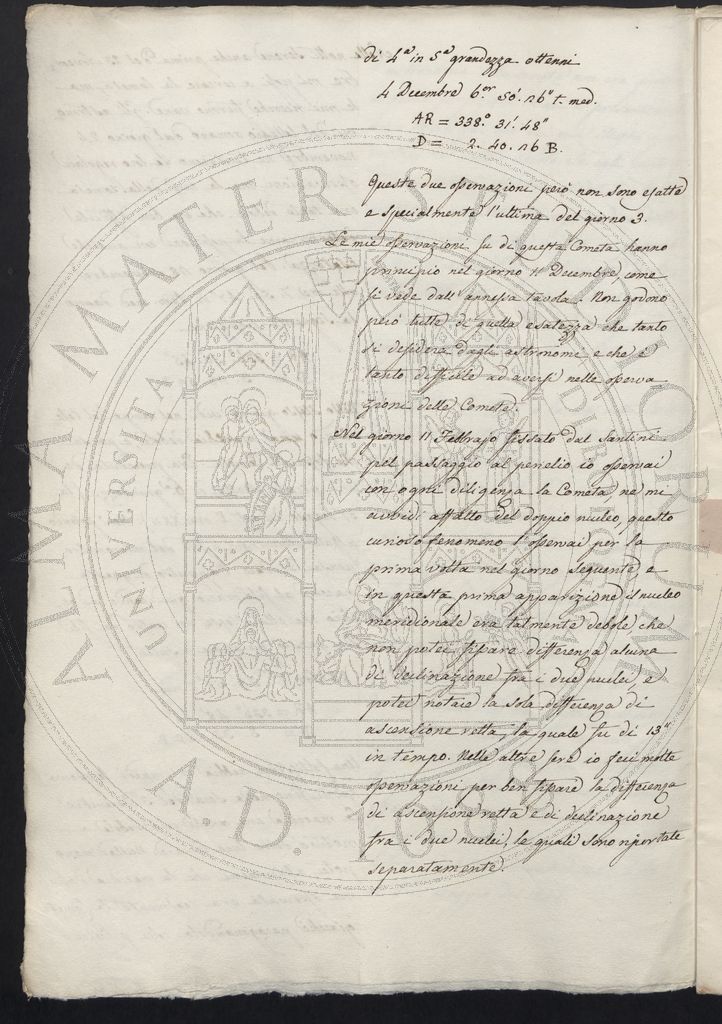 di 4ª in 5ª grandezza ottenni
4 Decembre 6.or 50'. 26" t. med.
AR = 338.° 31'. 48"
D = 2. 40. 26 B.
Queste due osservazioni però non sono esatte
e specialmente l'ultima del giorno 3.
Le mie osservazioni su di questa Cometa hanno
principio nel giorno 11 Decembre, come
si vede dall'annessa tavola. Non godono
però tutte di quella esatezza che tanto
si desidera dagli astronomi, e che è
tanto difficile ad aversi nelle osserva
zioni delle Comete.
Nel giorno 11 Febbrajo fissato dal Santini
pel passaggio al perielio io osservai
con ogni diligenza la Cometa, nè mi
avvidi affatto del doppio nucleo, questo
curioso fenomeno l'osservai per la
prima volta nel giorno seguente, e
in questa prima apparizione il nucleo
meridionale era talmente debole che
non potei fissare differenza alcuna
di declinazione fra i due nuclei, e
potei notare la sola differenza di
ascensione retta, la quale fu di 13"
in tempo. Nelle altre sere io feci molte
osservazioni per ben fissare la differenza
di ascensione retta e di declinazione
fra i due nuclei, le quali sono riportate
separatamente.
ALMA MATER STUDIORUM
UNIVERSITÀ DI BOLOGNA
A.D. 1088